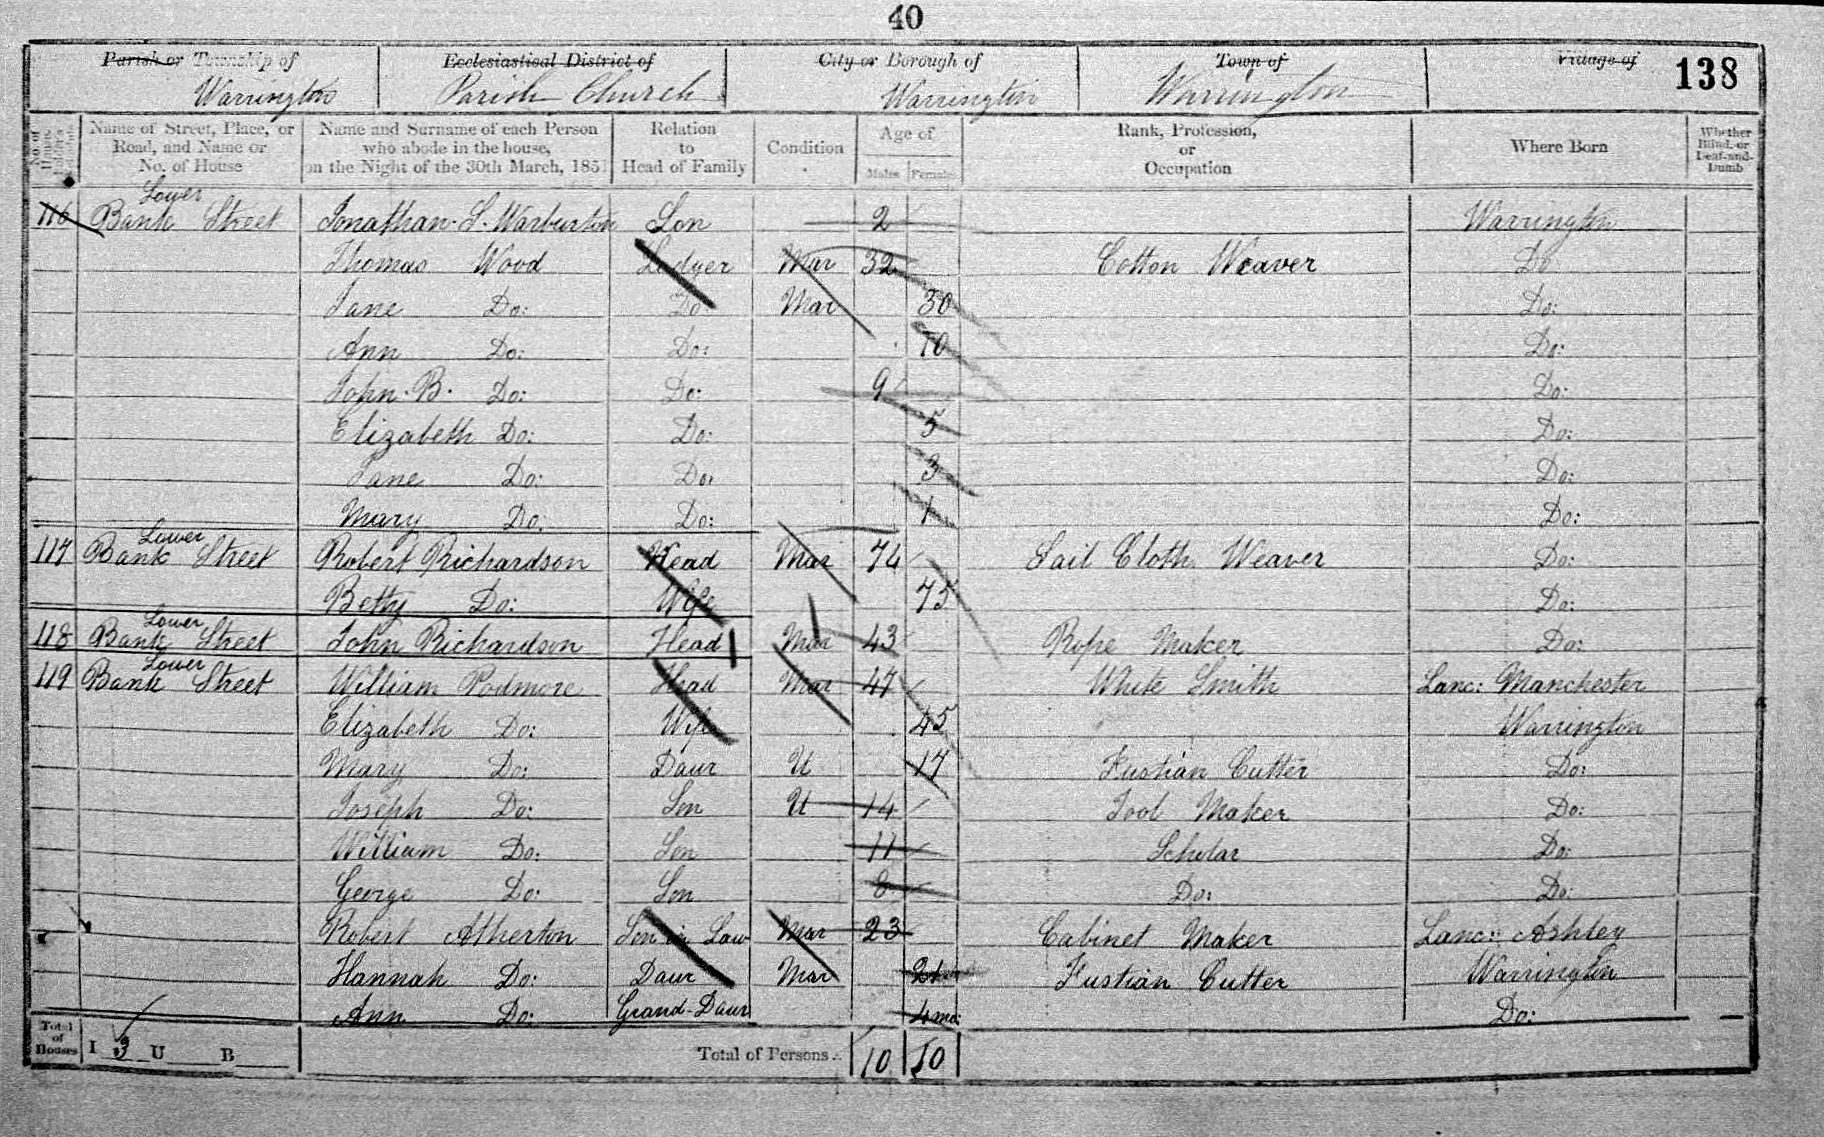 40
Parish or Township of Ecclesiastical District of City or Borough of Town of Village of 138
Warrington Parish Church Warrington Warrington
Name of Street, Place, or Road, and Name or No. of House Name and Surname of each Person who abode in the house, on the Night of the 30th March, 1851 Relation to Head of Family Condition Age of Males Females Rank, Profession, or Occupation Where Born Whether Blind, or Deaf-and-Dumb
116 Lower Bank Street Jonathan S. Warburton Son 2 Warrington
Thomas Wood Lodger Mar 32 Cotton Weaver Do
Jane Do: Do Mar 30 Do:
Ann Do: Do: 10 Do:
John B. Do: Do: 9 Do:
Elizabeth Do: Do: 5 Do:
Jane Do: Do: 3 Do:
Mary Do. Do: 1 Do:
117 Lower Bank Street Robert Richardson Head Mar 74 Sail Cloth Weaver Do:
Betty Do: Wife 75 Do:
118 Lower Bank Street John Richardson Head Mar 43 Rope Maker Do:
119 Lower Bank Street William Podmore Head Mar 47 White Smith Lanc: Manchester
Elizabeth Do: Wife 45 Warrington
Mary Do: Daur U 17 Fustian Cutter Do:
Joseph Do: Son U 14 Tool Maker Do:
William Do: Son 11 Scholar Do:
George Do: Son 8 Do: Do:
Robert Atherton Son in Law Mar 23 Cabinet Maker Lanc: Ashley
Hannah Do: Daur Mar 21 Fustian Cutter Warrington
Ann Do: Grand-Daur 4 mo: Do:
Total of Houses I 3 U B Total of Persons 10 10